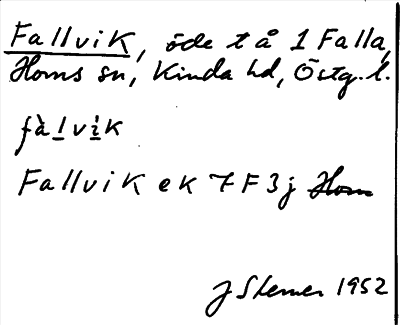 Fallvik, öde t å 1 Falla,
Horns sn, Kinda hd, Östg. l.
fàlvik
Fallvik ek 7F3j Horn
J Stemer 1952